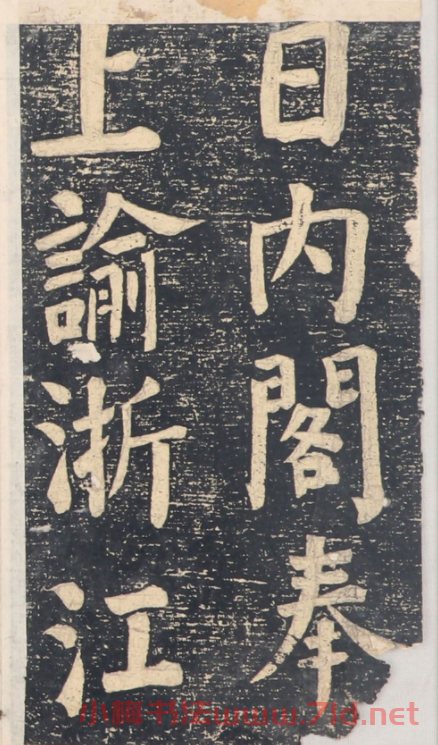 日内閣奉
上諭浙江
小楷书法www.7ld.net